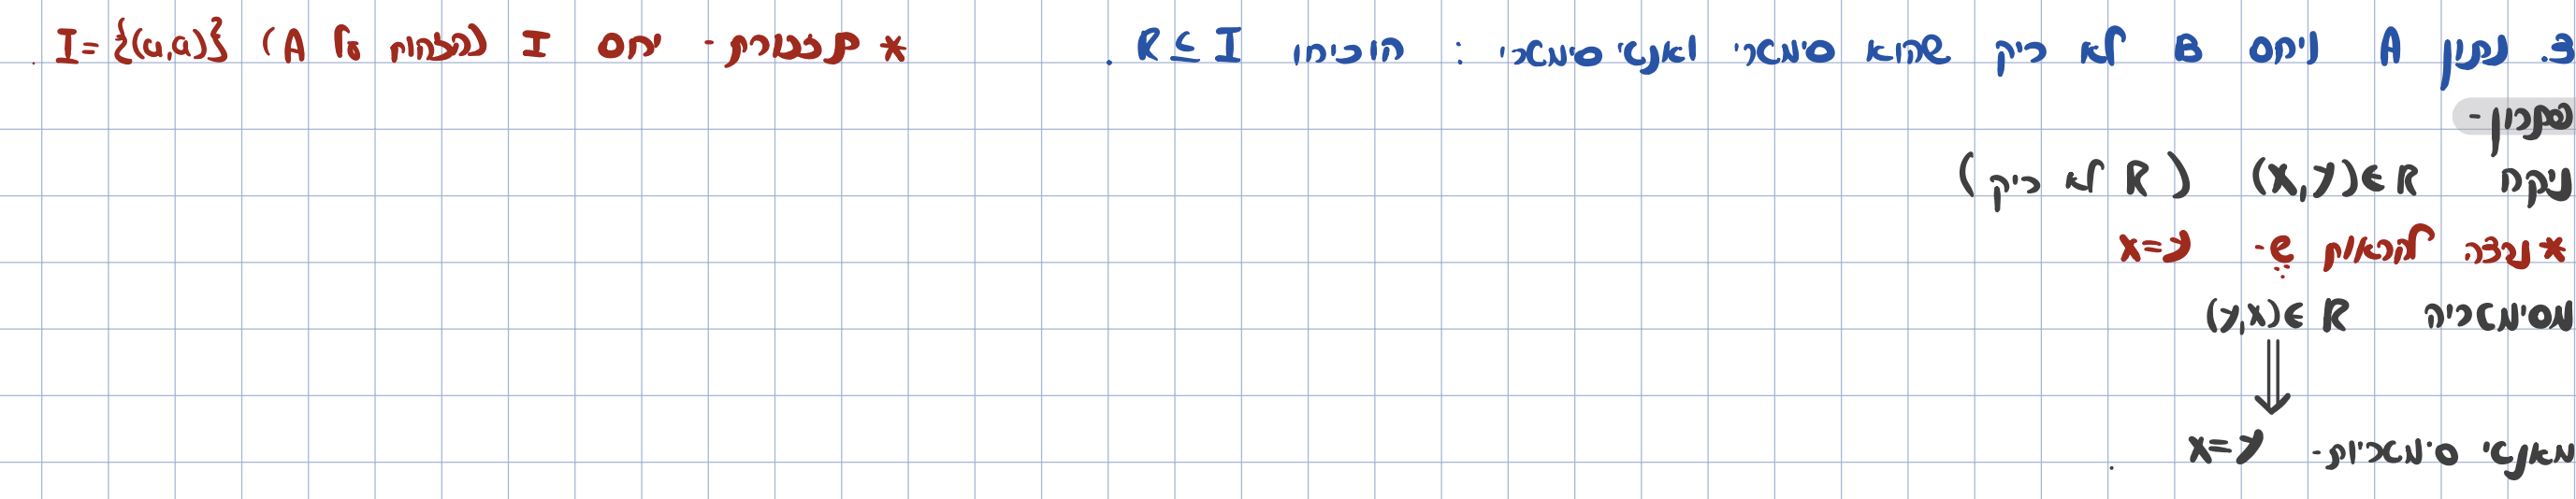 3. נתון A ויחס B לא ריק שהוא סימטרי ואנטי סימטרי : הוכיחו R ⊆ I . * תזכורת - יחס I (הזהות על A) I = {(a,a)}
פתרון -
ניקח (x,y)∈R (R לא ריק)
* נרצה להראות ש- x=y
מסימטריה (y,x)∈R
⇓
מאנטי סימטריות - x=y .